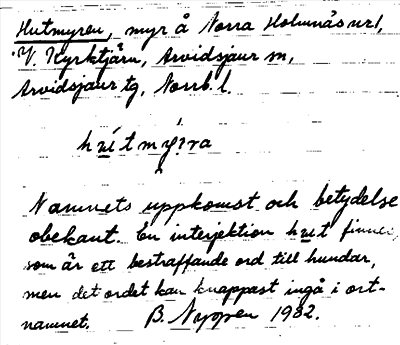 Hutmyren, myr å Norra Holmnäs url,
V. Kyrktjärn, Arvidsjaur sn,
Arvidsjaur tg, Norrb. l.
Namnets uppkomst och betydelse
obekant. En interjektion finnes,
som är ett bestraffande ord till hundar,
men det ordet kan knappast ingå i ort-
namnet. B. Nygren 1932.